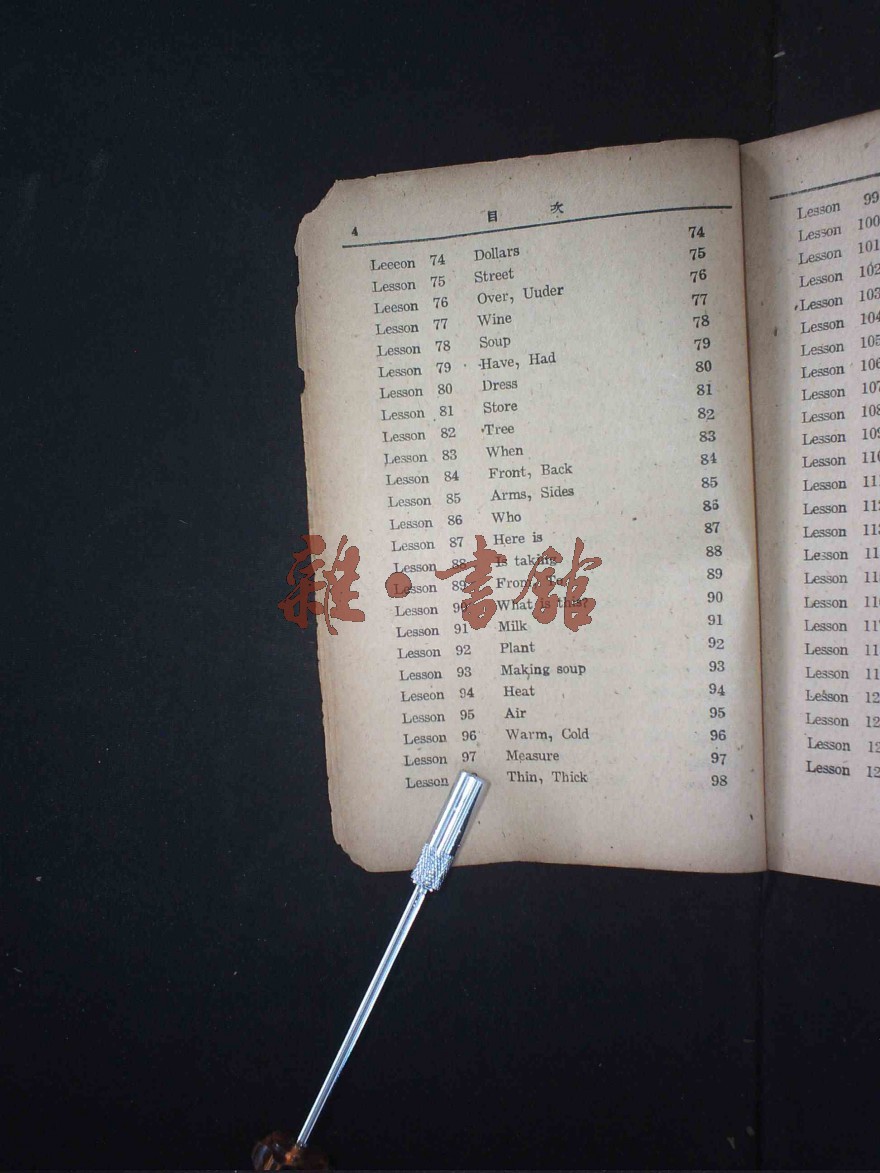 4 目 次
Leeeon 74 Dollars 74
Lesson 75 Street 75
Leeson 76 Over, Uuder 76
Lesson 77 Wine 77
Lesson 78 Soup 78
Lesson 79 Have, Had 79
Lesson 80 Dress 80
Lesson 81 Store 81
Lesson 82 Tree 82
Lesson 83 When 83
Lesson 84 Front, Back 84
Lesson 85 Arms, Sides 85
Lesson 86 Who 86
Lesson 87 Here is 87
Lesson 88 Is taking 88
Lesson 89 From, To 89
Lesson 90 What is this? 90
Lesson 91 Milk 91
Lesson 92 Plant 92
Lesson 93 Making soup 93
Leseon 94 Heat 94
Lesson 95 Air 95
Lesson 96 Warm, Cold 96
Lesson 97 Measure 97
Lesson Thin, Thick 98
雜·書館
Lesson 99
Lesson 100
Lesson 101
Lesson 102
Lesson 103
Lesson 104
Lesson 105
Lesson 106
Lesson 107
Lesson 108
Lesson 109
Lesson 110
Lesson
Lesson
Lesson
Lesson
Lesson
Lesson
Lesson
Lesson
Lesson
Lesson
Lesson
Lesson
Lesson